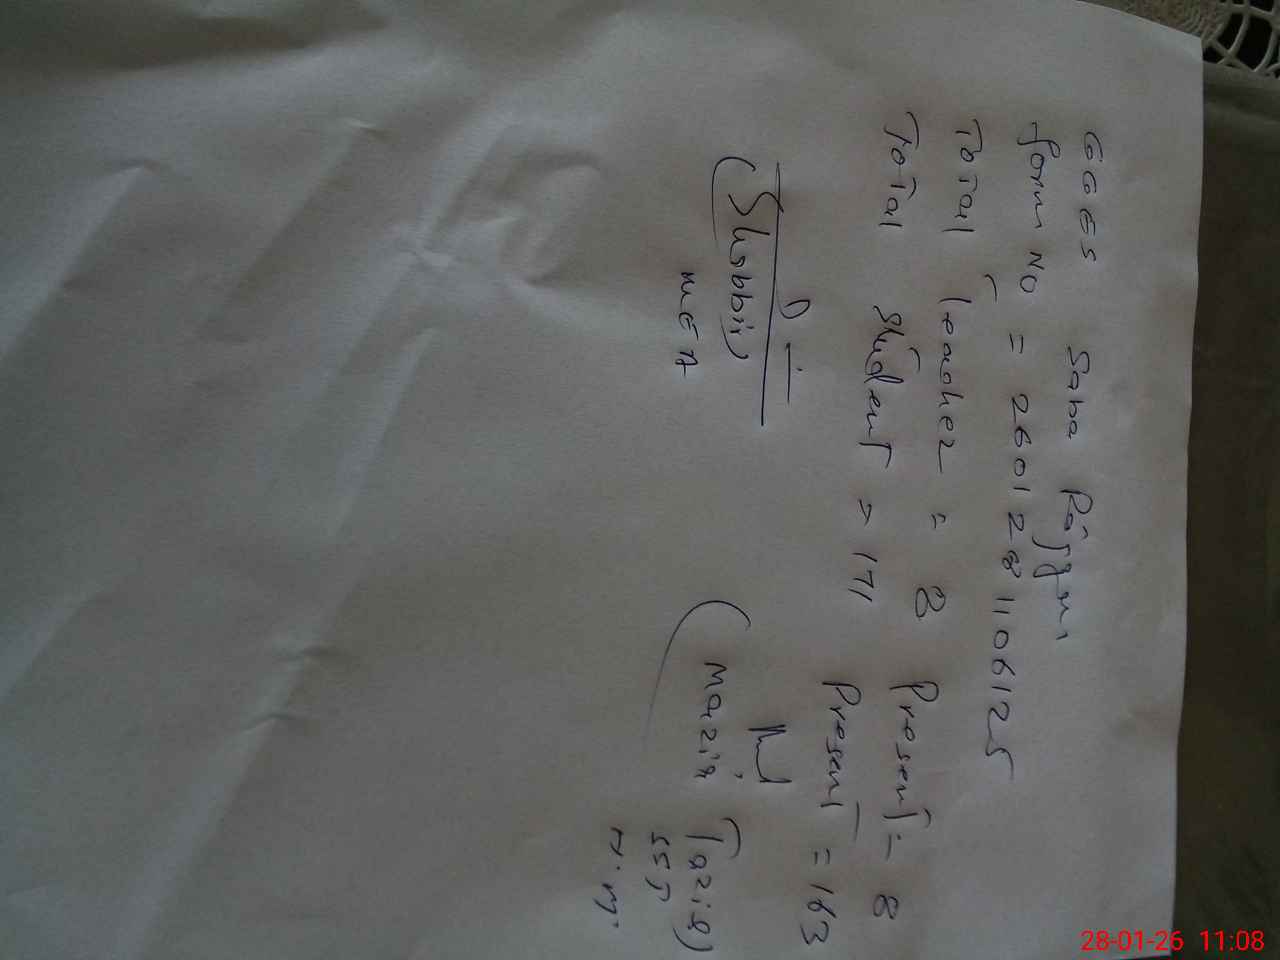 GGES Saba
form No = 2601281106125
Total Teacher = 8 Present = 8
Total Student = 171 Present = 163
(Shabbir)
MEA
(Mazia Tazia)
SST
28-01-26 11:08